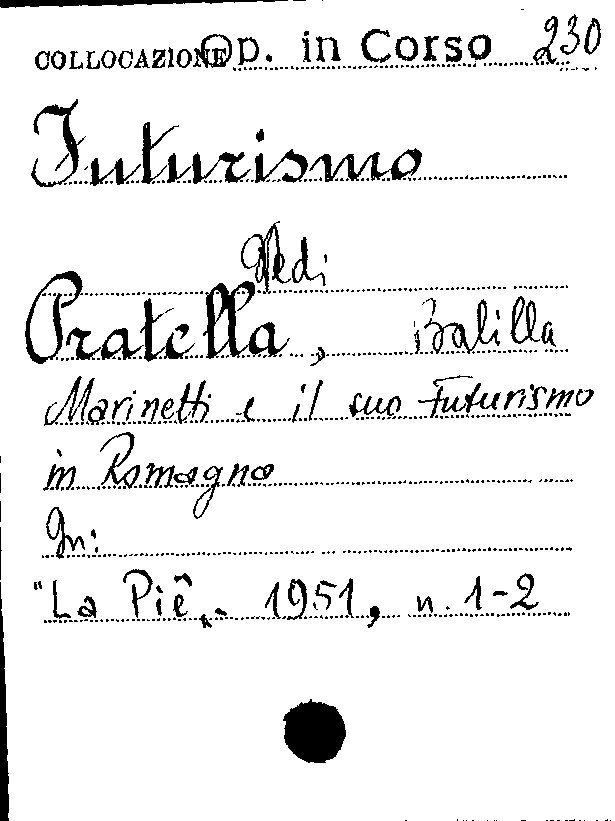 COLLOCAZIONE Op. in Corso 230
Futurismo
Vedi
Pratella, Balilla
Marinetti e il suo Futurismo
in Romagna
In:
"La Piê". 1951, n. 1-2